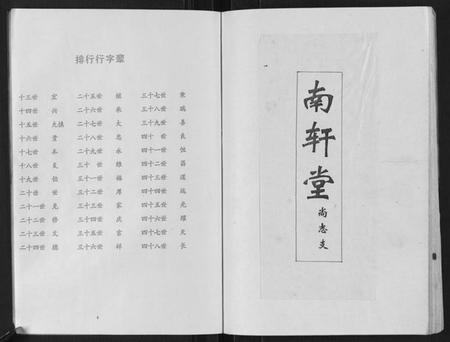 排行行字輩
十三世 宏 二十五世 继 三十七世 秉
十四世 兴 二十六世 承 三十八世 瑞
十五世 大慎 二十七世 大 三十九世 善
十六世 二十八世 志 四十世 良
十七世 本 二十九世 永 四十一世 恒
十八世 三十世 维 四十二世 昌
十九世 三十一世 福 四十三世 道
二十世 世 三十二世 厚 四十四世 远
二十一世 三十三世 家 四十五世 光
二十二世 修 三十四世 庆 四十六世 耀
二十三世 文 三十五世 吉 四十七世 天
二十四世 德 三十六世 祥 四十八世 长
南轩堂
尚志支